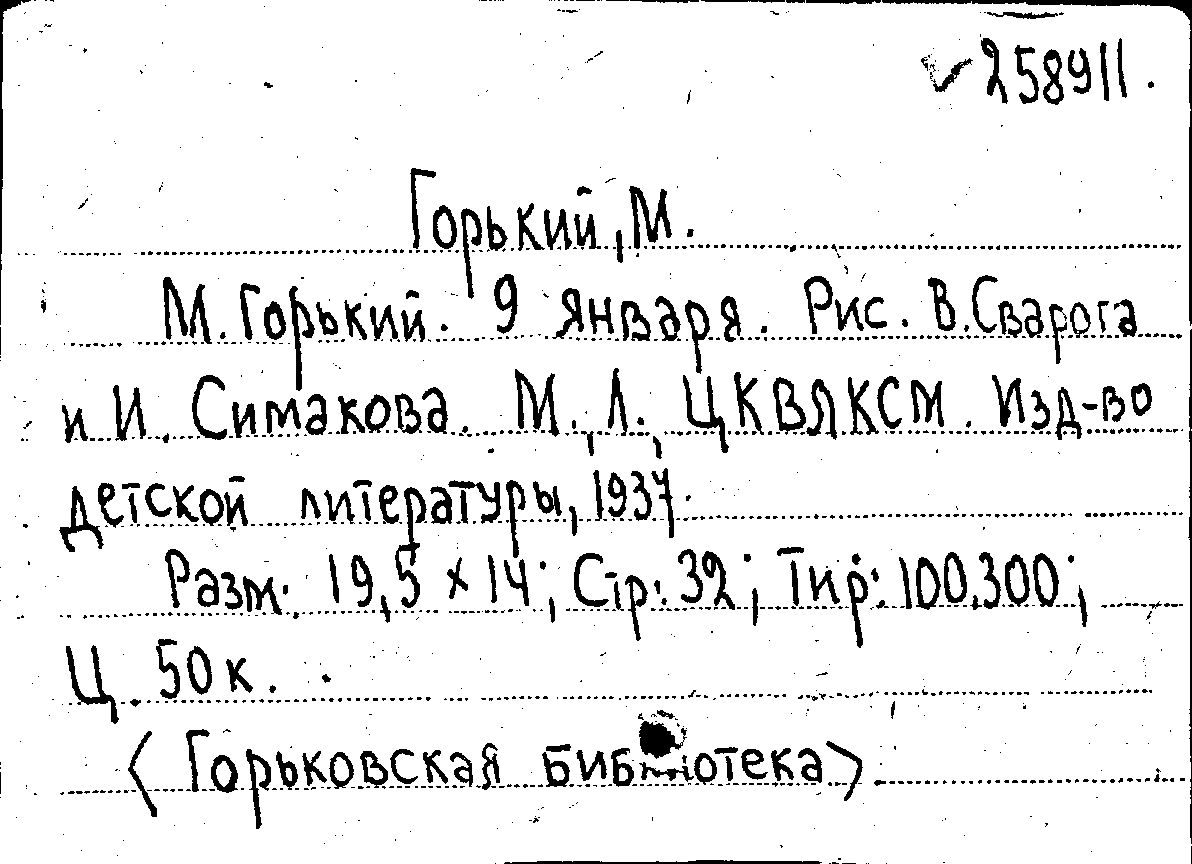 ✓258911.
Горький, М.
М. Горький. 9 января. Рис. В. Сварога
и И. Симакова. М., Л., ЦКВЛКСМ. Изд-во
детской литературы, 1937.
Разм. 19,5 × 14; Стр: 32; Тир: 100.300;
Ц. 50 к.
〈 Горьковская библиотека 〉.